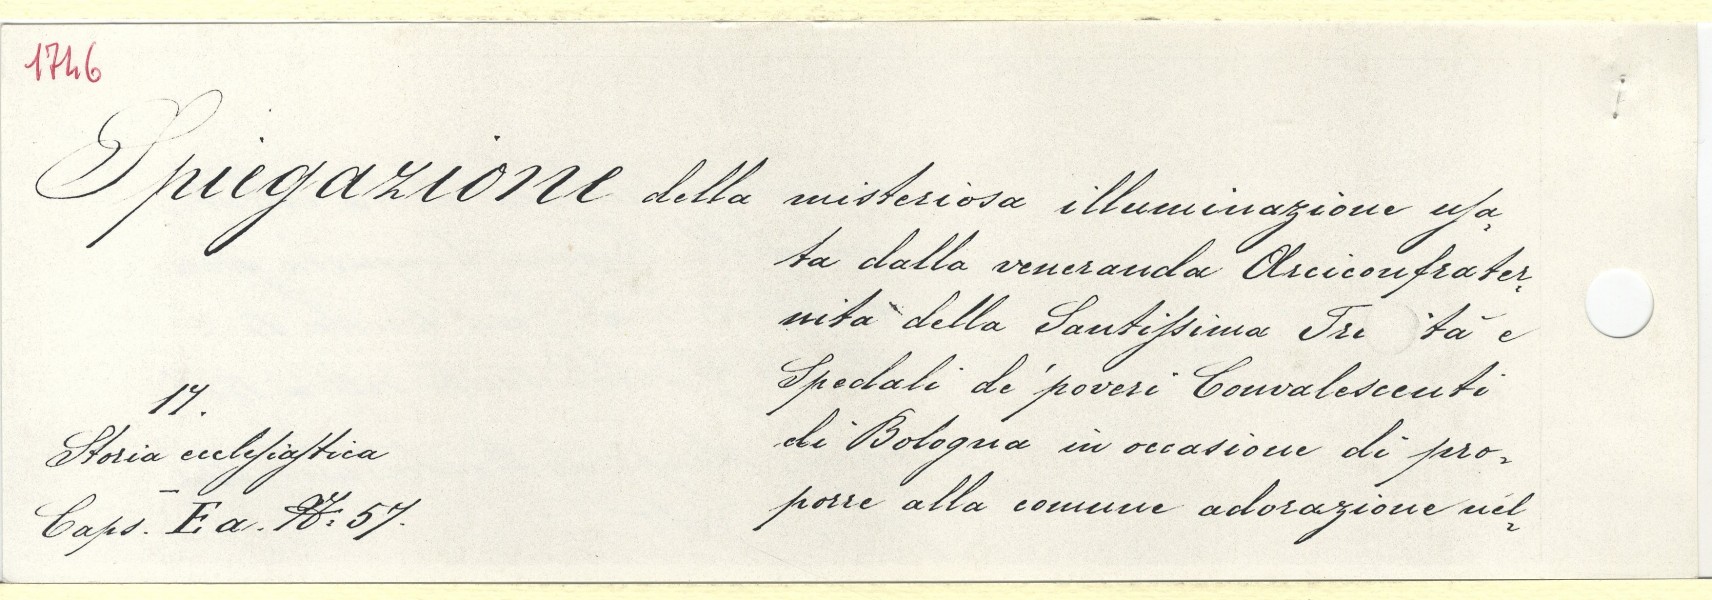 1746
Spiegazione della misteriosa illuminazione usa=
ta dalla veneranda Arciconfrater=
nita della Santissima Tri tà e
Spedali de' poveri Convalescenti
di Bologna in occasione di pro=
porre alla comune adorazione nel=
17.
Storia ecclesiastica
Caps. E a. N: 57.